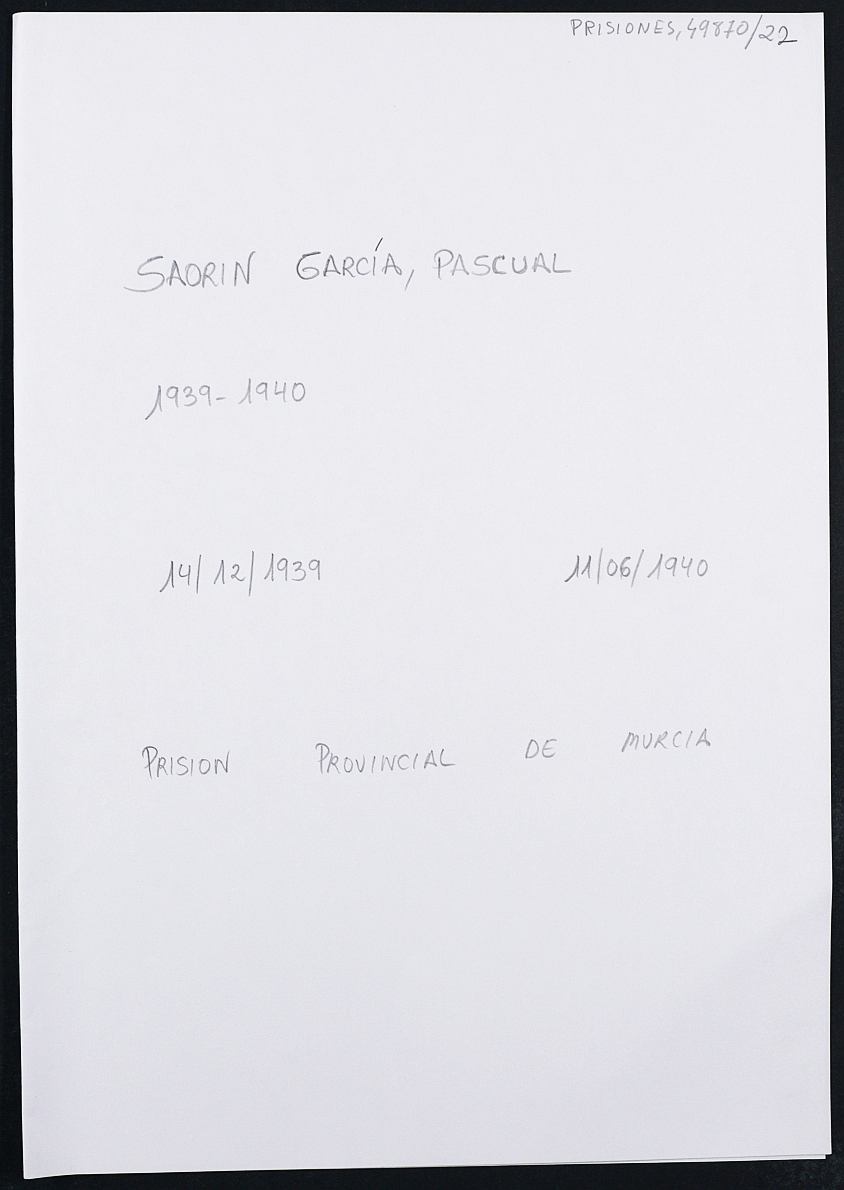 PRISIONES,49870/22
SAORIN GARCÍA, PASCUAL
1939-1940
14/12/1939 11/06/1940
PRISION PROVINCIAL DE MURCIA